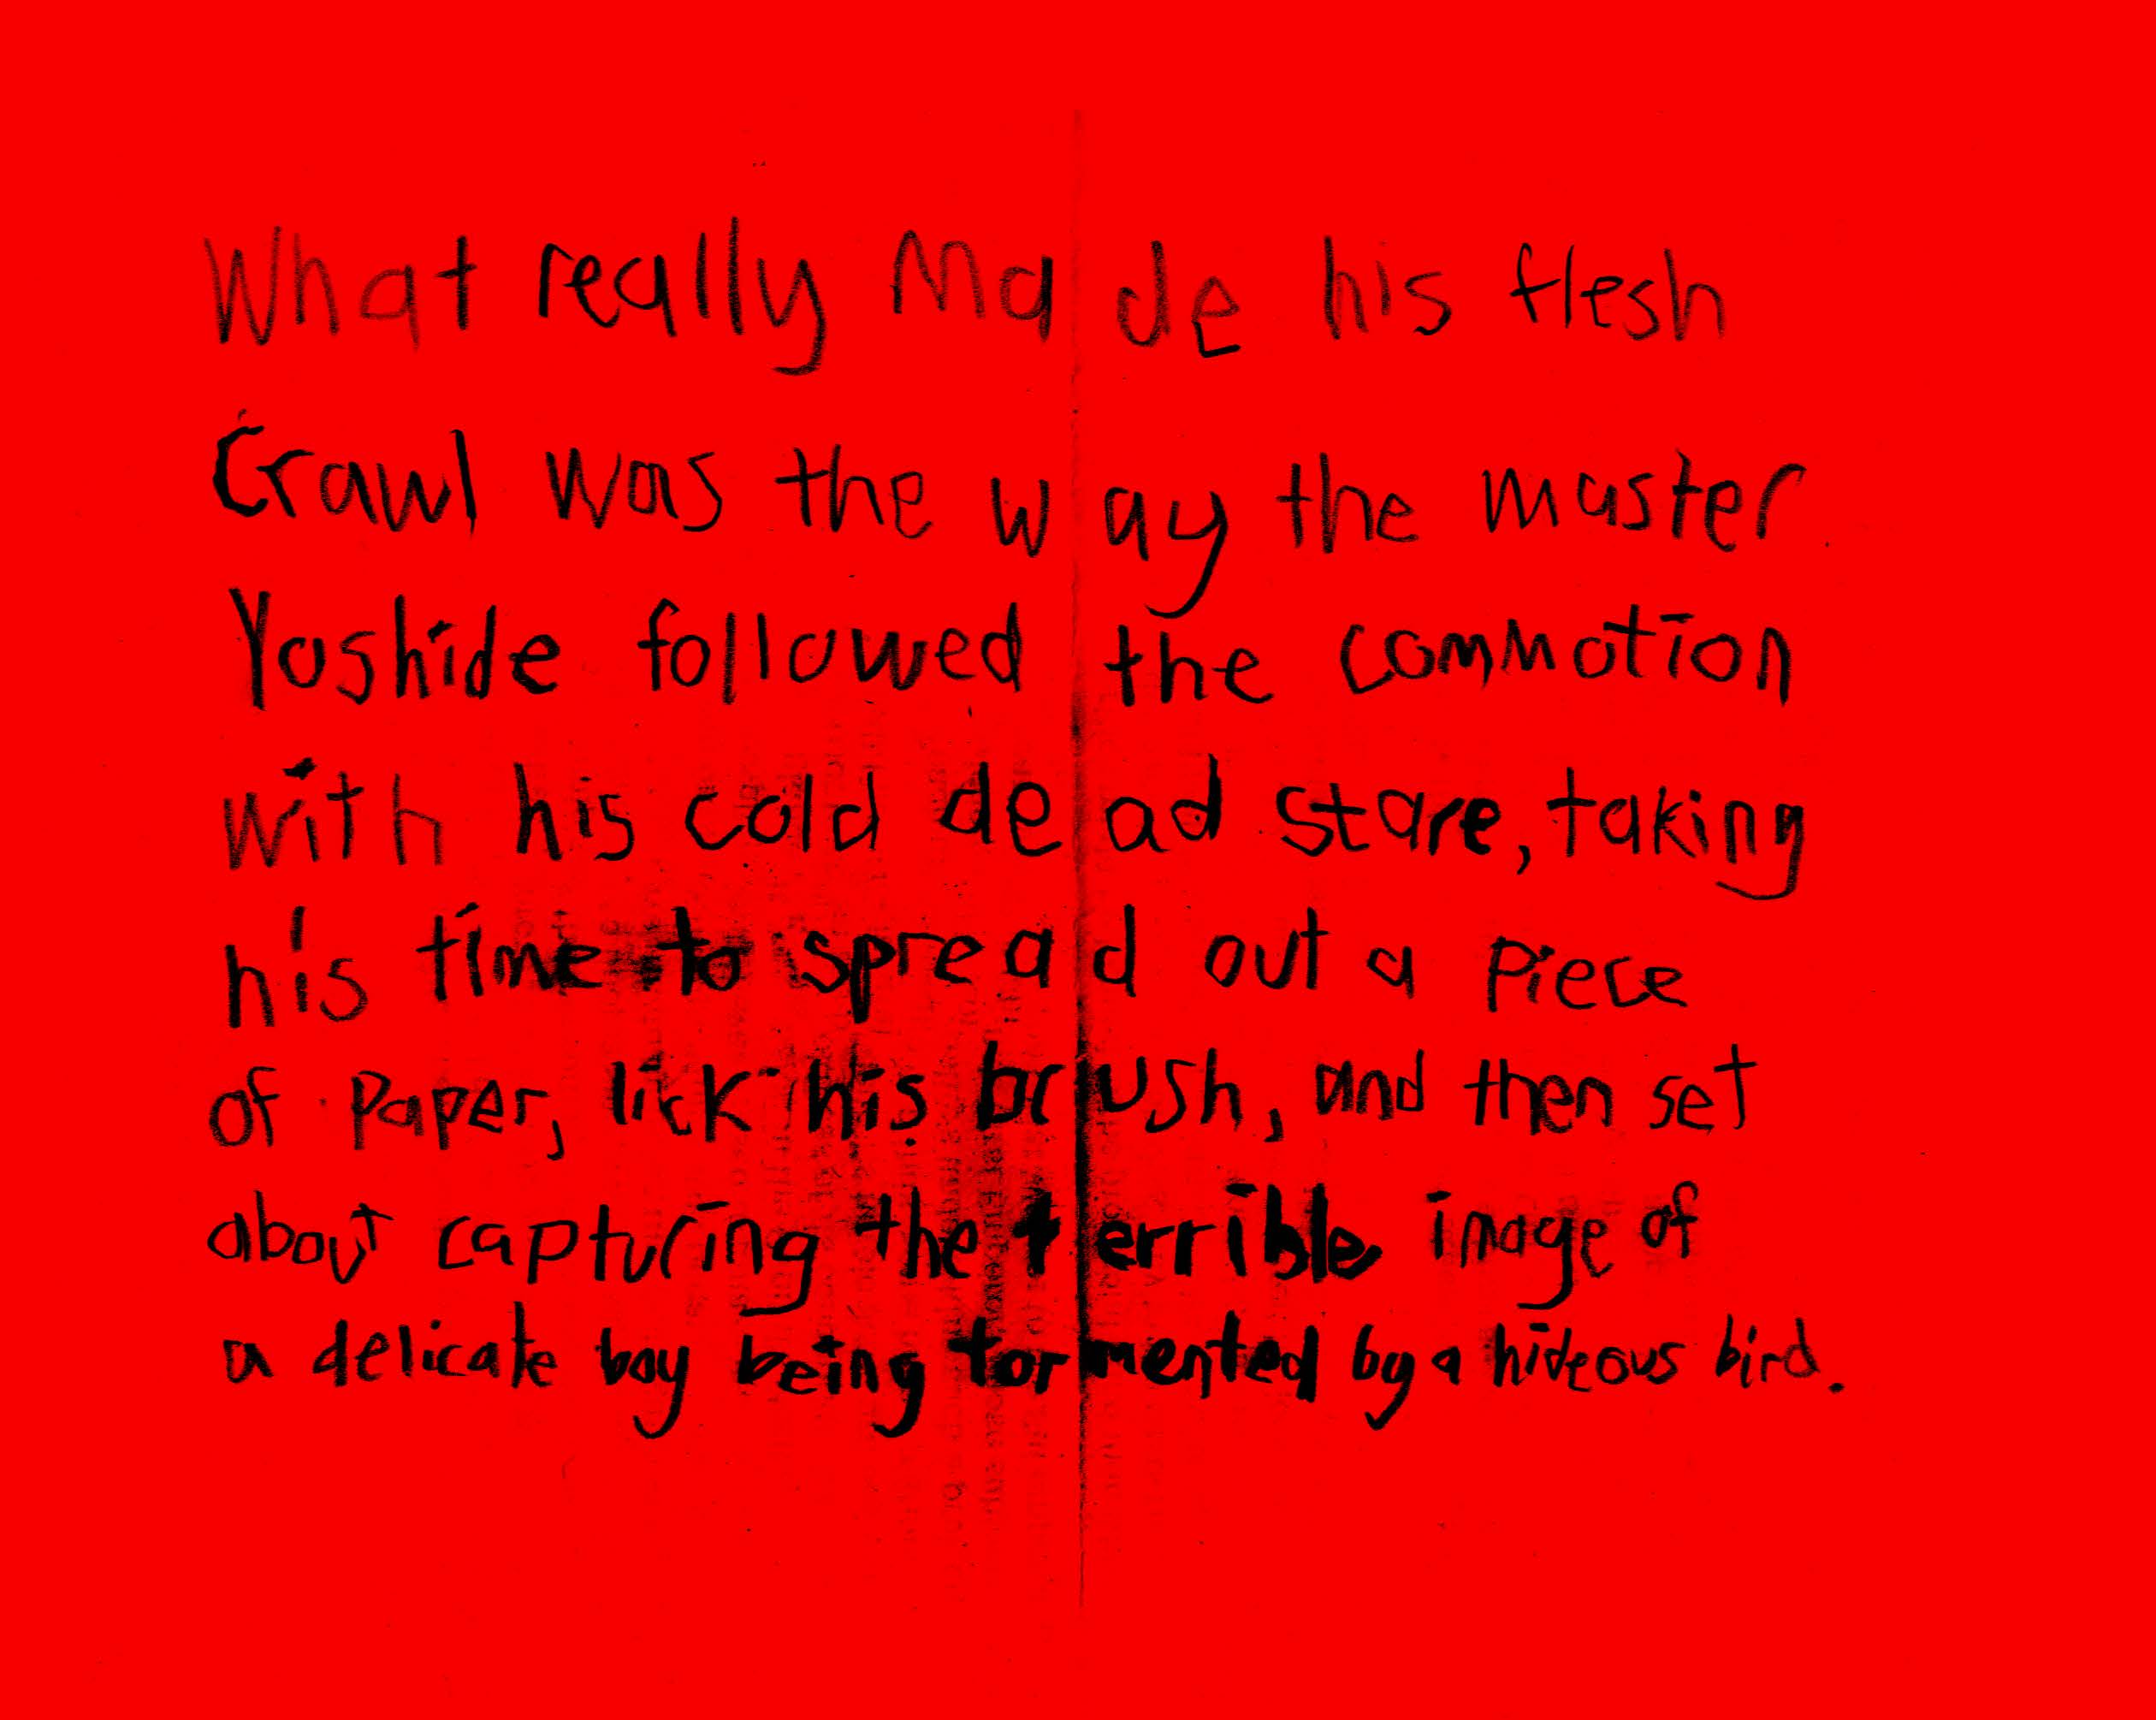 What really made his flesh
Crawl was the way the master
Yoshide followed the commotion
with his cold dead stare, taking
his time to spread out a piece
of paper, lick his brush, and then set
about capturing the terrible image of
a delicate boy being tormented by a hideous bird.